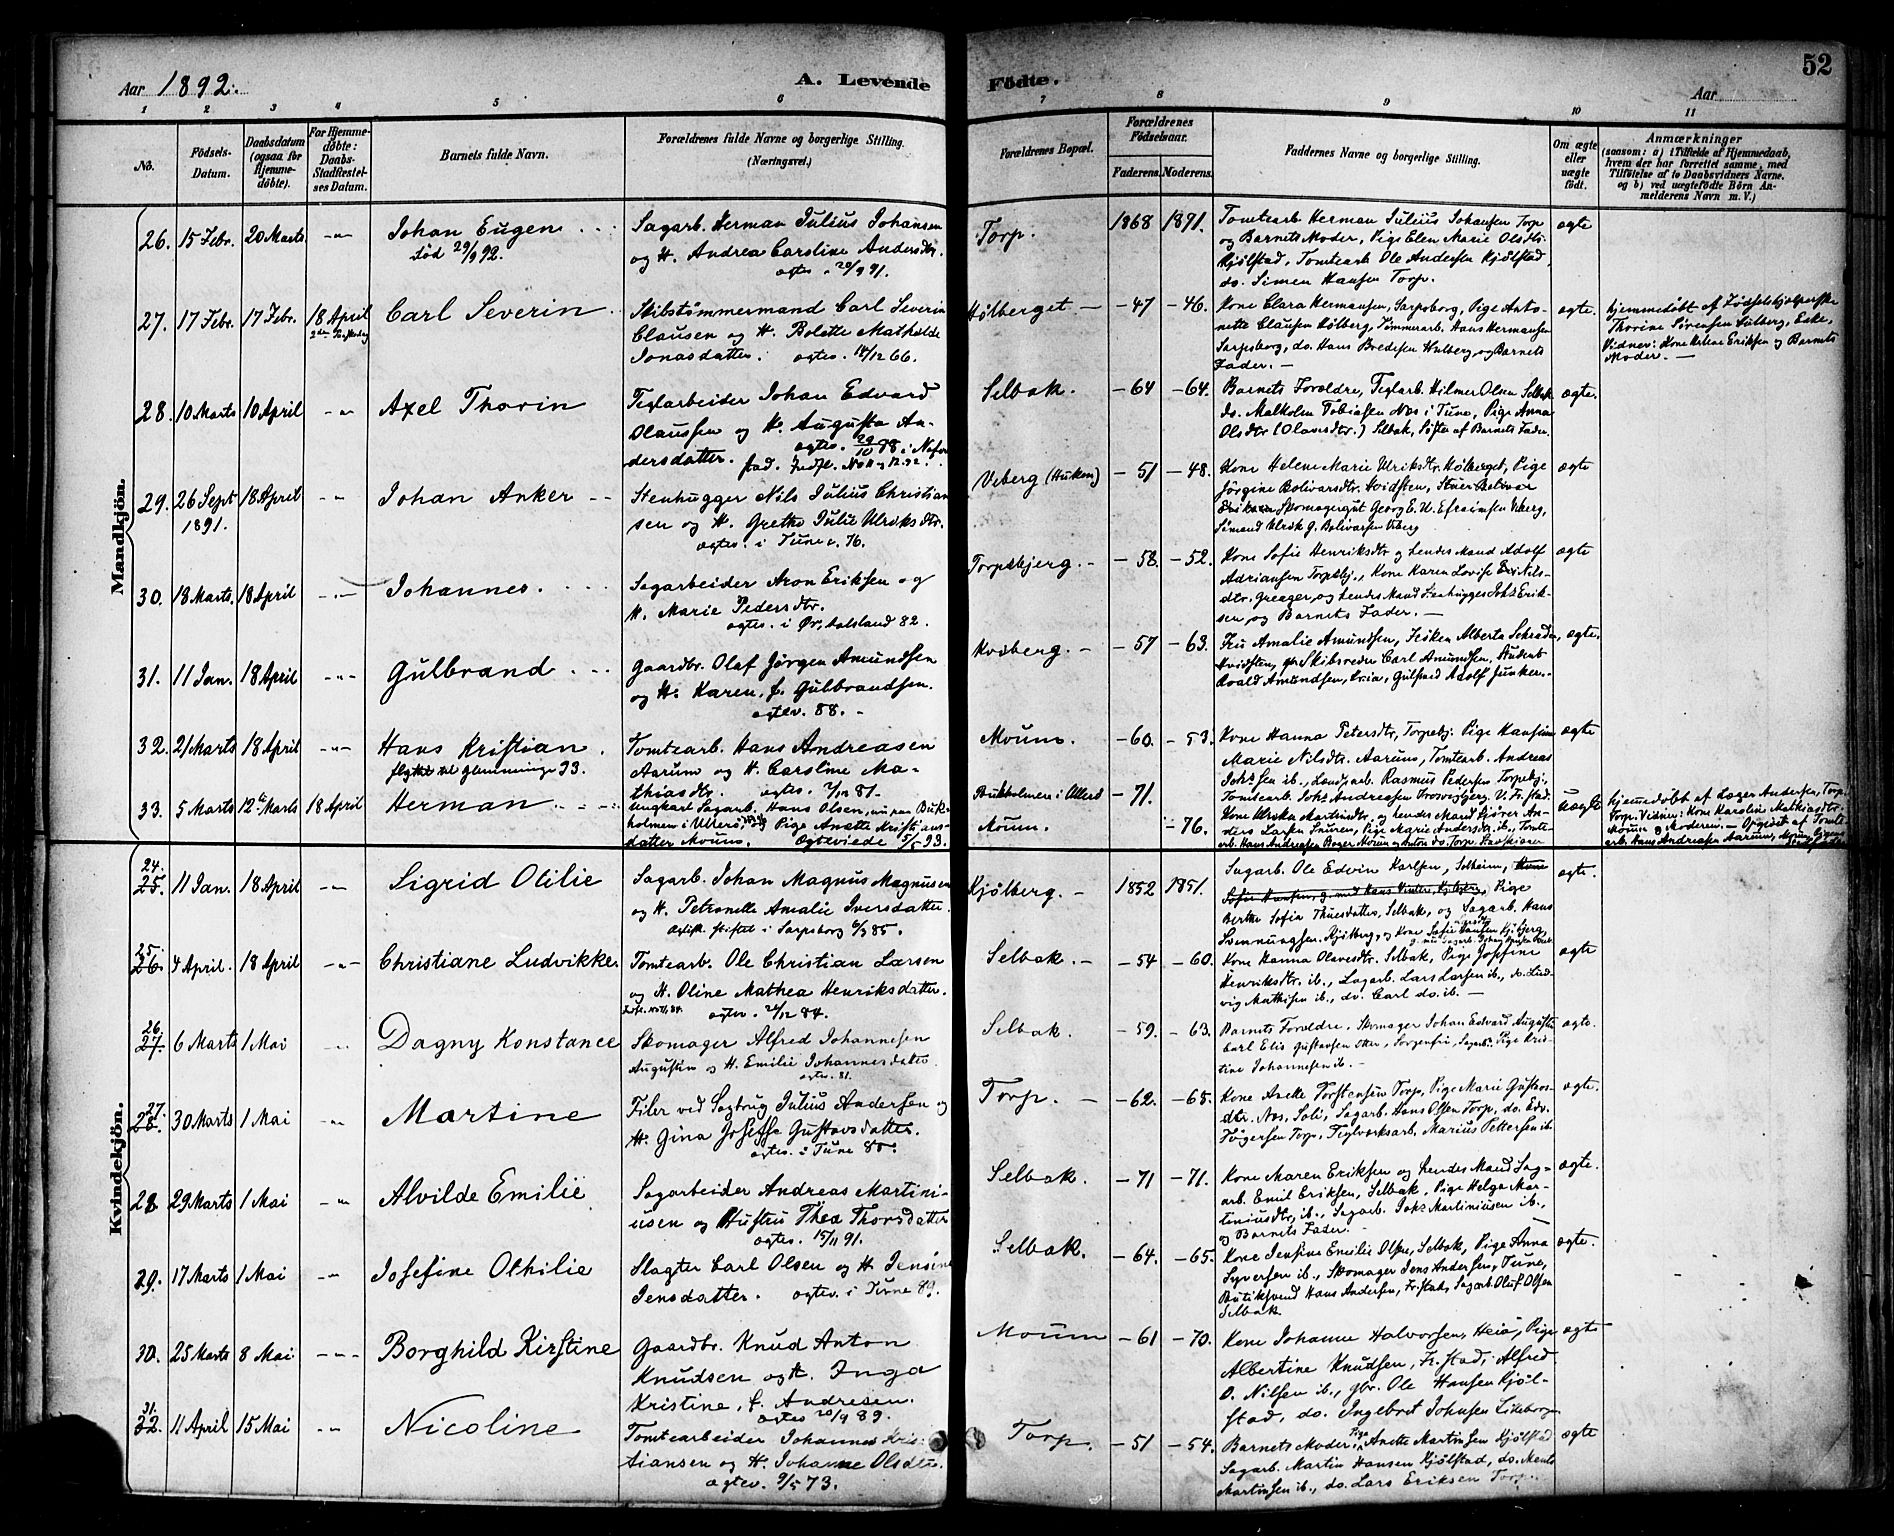 52
Aar 1892. A. Levende Födte. Aar
1 2 3 4 5 6 7 8 9 10 11
No. Födsels-Datum. Daabsdatum (ogsaa for Hjemme-döbte). For Hjemme-døbte: Daabs-Stadfæstel-ses Datum. Barnets fulde Navn. Forældrenes fulde Navne og borgerlige Stilling. (Næringsvei.) Forældrenes Bopæl. Forældrenes Födselsaar. Faderens. Moderens. Faddernes Navne og borgerlige Stilling. Om ægte eller uægte født. Anmærkninger (saasom: a) i Tilfælde af Hjemmedaab, hvem der har forrettet samme, med Tilføielse af to Daabsvidners Navne. og b) ved uægtefödte Börn An-melderens Navn m. V.)
Mandkjön.
26. 15 Febr. 20 Marts -"- Johan Eugen
død 29/9 92.
Sagarb. Herman Julius Johansen
og H. Andrea Caroline Andersdtr.
Torp. 1868 1871.
Tomtearb Herman Julius Johansen Torp
og Barnets Moder, Pige Elen Marie Olsdtr.
Kjölstad, Tomtearb Ole Andersen Kjölstad,
do. Simen Hansen Torp.
ægte
27. 17 Febr. 17 Febr. 18 April Carl Severin
Skibstömmermand Carl Severin
Clausen og H. Bolette Mathilde
Jonasdatter. ægtev. 14/12 66.
Hölberget - -47 -46.
Kone Clara Hermansen, Sarpsborg, Pige Anto-
nette Clausen Hölberg, Tömmerarb. Hans Hermansen
Sarpsborg, do. Hans Bredesen Hulberg, og Barnets
Fader. -
ægte.
hjemmedøbt af Fødselshjælperske
Thorine Sörensen
Vidner: Kone Helene Eriksen og Barnets
Moder. -
28. 10 Marts 10 April -"- Axel Thorin
Teglarbeider Johan Edvard
Olaussen og H. Augusta An-
dersdatter.
Selbak. -64 -64.
Barnets Forældre, Teglarb. Hilmer Olsen Selbak
do. Malkolm Tobiasen Næs i Tune, Pige Anna
Olsdtr (Olavesdtr.) Selbak, Søster af Barnets Fader.
ægte.
29. 26 Sept 18 April -"- Johan Anker
1891.
Stenhugger Nils Julius Christian
sen og H. Grethe Julie Ulriksdtr.
ægtev. i Tune c. 76.
Veberg (Huken) -51 -48.
Kone Helene Marie Ulriksdtr. Hølberget, Pige
Jörgine Bolivarsdtr. Hvidsten,
Skomagergut Georg E. W. Efraimsen Veberg,
Sömand Ulrik G. Bolivarsen Veberg
ægte
30. 18 Marts. 18 April -"- Johannes.
Sagarbeider Aron Eriksen og
H. Marie Pedersdtr.
ægtev. i 82.
Torpebjerg. -58. -52.
Kone Sofie Henriksdtr og hendes Mand Adolf
Adriansen Torpebj., Kone Karen Lovise Nils-
dtr. Greager, og hendes Mand Stenhugger Johs Erik-
sen, og Barnets Fader. -
ægte
31. 11 Jan. 18 April -"- Gulbrand
Gaardbr. Olaf Jørgen Amundsen
og H. Karen, f. Gulbrandsen.
ægtev. 88. -
-57 -63.
Fru Amalie Amundsen, Frøken Alberta
Hvidsten, Skibsreder Carl Amundsen, Student
Roald Amundsen, Gulfred Adolf Junker.
ægte.
32. 21 Marts 18 April -"- Hans Kristian.
flyttet til Glemminge 93.
Tomtearb. Hans Andreasen
Aarum og H. Caroline Ma-
thiasdtr. ægtev. 81.
Moum. -60. -53.
Kone Hanna Petersdtr, Torpebj. Pige Hansine
Marie Nilsdtr. Aarum, Tomtearb. Andreas
Johs'sen ib., Landarb. Rasmus Pedersen Torpebj.
Tomtearb. Johs Andreasen
ægte
33. 5 Marts 12te Marts 18 April Herman.
Ungkarl Sagarb. Hans Olsen, nu paa Buk-
holmen i Ullerö, og Pige Anette Kristians-
datter Moum. Ægteviede 5/5 93.
Bukholmen i Ullerö -71.
Moum. -76.
Kone Ulrika Martinsdtr, og hendes Mand An-
ders Larsen Pige Marie Andersdtr. ib., Tomte-
arb. Hans Andreasen
uægte
hjemmedøbt af Andersen, Torp.
Vidner: Kone Karoline Mathiasdtr.
Moum og Moderen. - Opgivet af Tomte-
arb. Hans Andreasen Aarum, Moum
Kvindekjön.
24.
25. 11 Jan. 18 April -"- Sigrid Otilie
Sagarb. Johan Magnus Magnussen
og H. Petronelle Amalie Iversdatter.
stiftet i Sarpsborg 85.
Kjölberg. - 1852 1851.
Sagarb. Ole Edvin Karlsen, Solheim, Kone
Pige
Berthe Sofie Thuesdatter, Selbak, og Sagarb. Hans
Svennungsen, Kjölberg, og Kone Sofie Hansen Kjölberg,
ægte.
25.
26. 4 April. 18 April -"- Christiane Ludvikke
Tomtearb. Ole Christian Larsen
og H. Oline Mathea Henriksdatter.
ægtev. 26/12 84.
Selbak. - -54 -60.
Kone Hanna Olavesdtr. Selbak, Pige Josefine
Henriksdtr. ib., Sagarb. Lars Larsen ib., do. Lud-
vig Mathisen ib., do. Carl do. ib. -
ægte
26.
27. 6 Marts 1 Mai -"- Dagny Konstance
Skomager Alfred Johannesen
Augustin og H. Emilie Johannesdatter
ægtev. 81.
Selbak. -59. -63.
Barnets Forældre, Skomager Johan Edvard Augustin
Carl Elis Gustavsen Sorgenfri, Sagarb. Pige Kris-
tine Johannesen ib. -
ægte.
27.
28. 30 Marts 1 Mai -"- Martine
Filer ved Sagbrug Julius Andersen og
H. Gina Josefe Gustavsdatter.
ægtev. i Tune 85.
Torp. - -62. -65.
Kone Anette Torstensen Torp, Pige Marie Gustavs-
dtr. Næs, Soli, Sagarb. Hans Olsen Torp, do. Edv.
Torp, Teglværksarb. Marius Pettersen ib.
ægte.
28 29 Marts 1 Mai -"- Alvilde Emilie
Sagarbeider Andreas Martini-
usen og Hustru Thea Thorsdatter
ægtev. 15/11 91.
Selbak. -71 -71.
Kone Maren Eriksen og hendes Mand Sag-
arb. Emil Eriksen, Selbak, Pige Helga Mar-
tiniusdtr, ib., Sagarb. Johs Martiniusen ib.,
og Barnets Fader. -
ægte.
29. 17 Marts 1 Mai -"- Josefine Othilie
Slagter Carl Olsen og H. Jensine
Jensdatter. ægtev. i Tune 89.
Selbak. -64. -65.
Kone Jensine Emilie Olsen, Selbak, Pige Anna
Syversen ib., Skomager Jens Andersen, Tune,
Butiksvend Hans Andersen, Fr.stad, Sagarb Oluf Olsen
Selbak
ægte.
30. 25 Marts 8 Mai -"- Borghild Kirstine
Gaardbr. Knud Anton
Knudsen og H. Inga
Kristine, f. Andresen.
ægtev 20/9 89.
Moum -61 -70.
Kone Johanne Halvorsen, Heiö, Pige
Albertine Knudsen, Fr.stad, Alfred
O. Nilsen ib., gbr. Ole Hansen Kjöl-
stad, do. Ingebret Johnsen
ægte
31.
32. 11 April 15 Mai -"- Nicoline
Tomtearbeider Johannes Kris-
tiansen og H. Johanne Olsdtr.
ægtev. 9/5 73.
Torp. -51 -54.
Barnets Moder, Pige Anette Martinsen Kjölstad
Sagarb. Martin Hansen Kjölstad, do.
Martinsen ib., do. Lars Eriksen Torp.
ægte